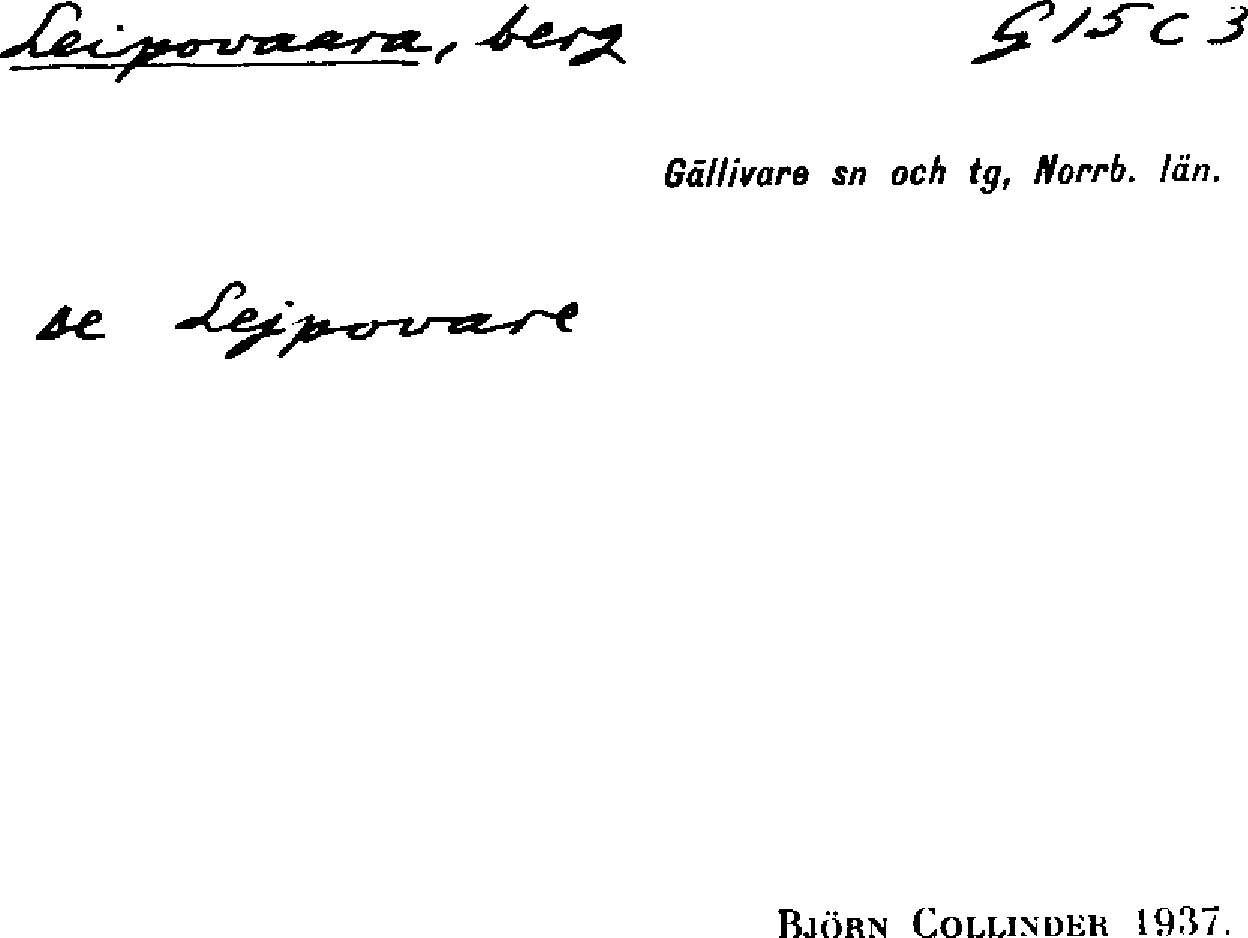 Leipovaara, berg G15C3
Gällivare sn och tg, Norrb. län.
se Lejpovare
BJÖRN COLLINDER 1937.